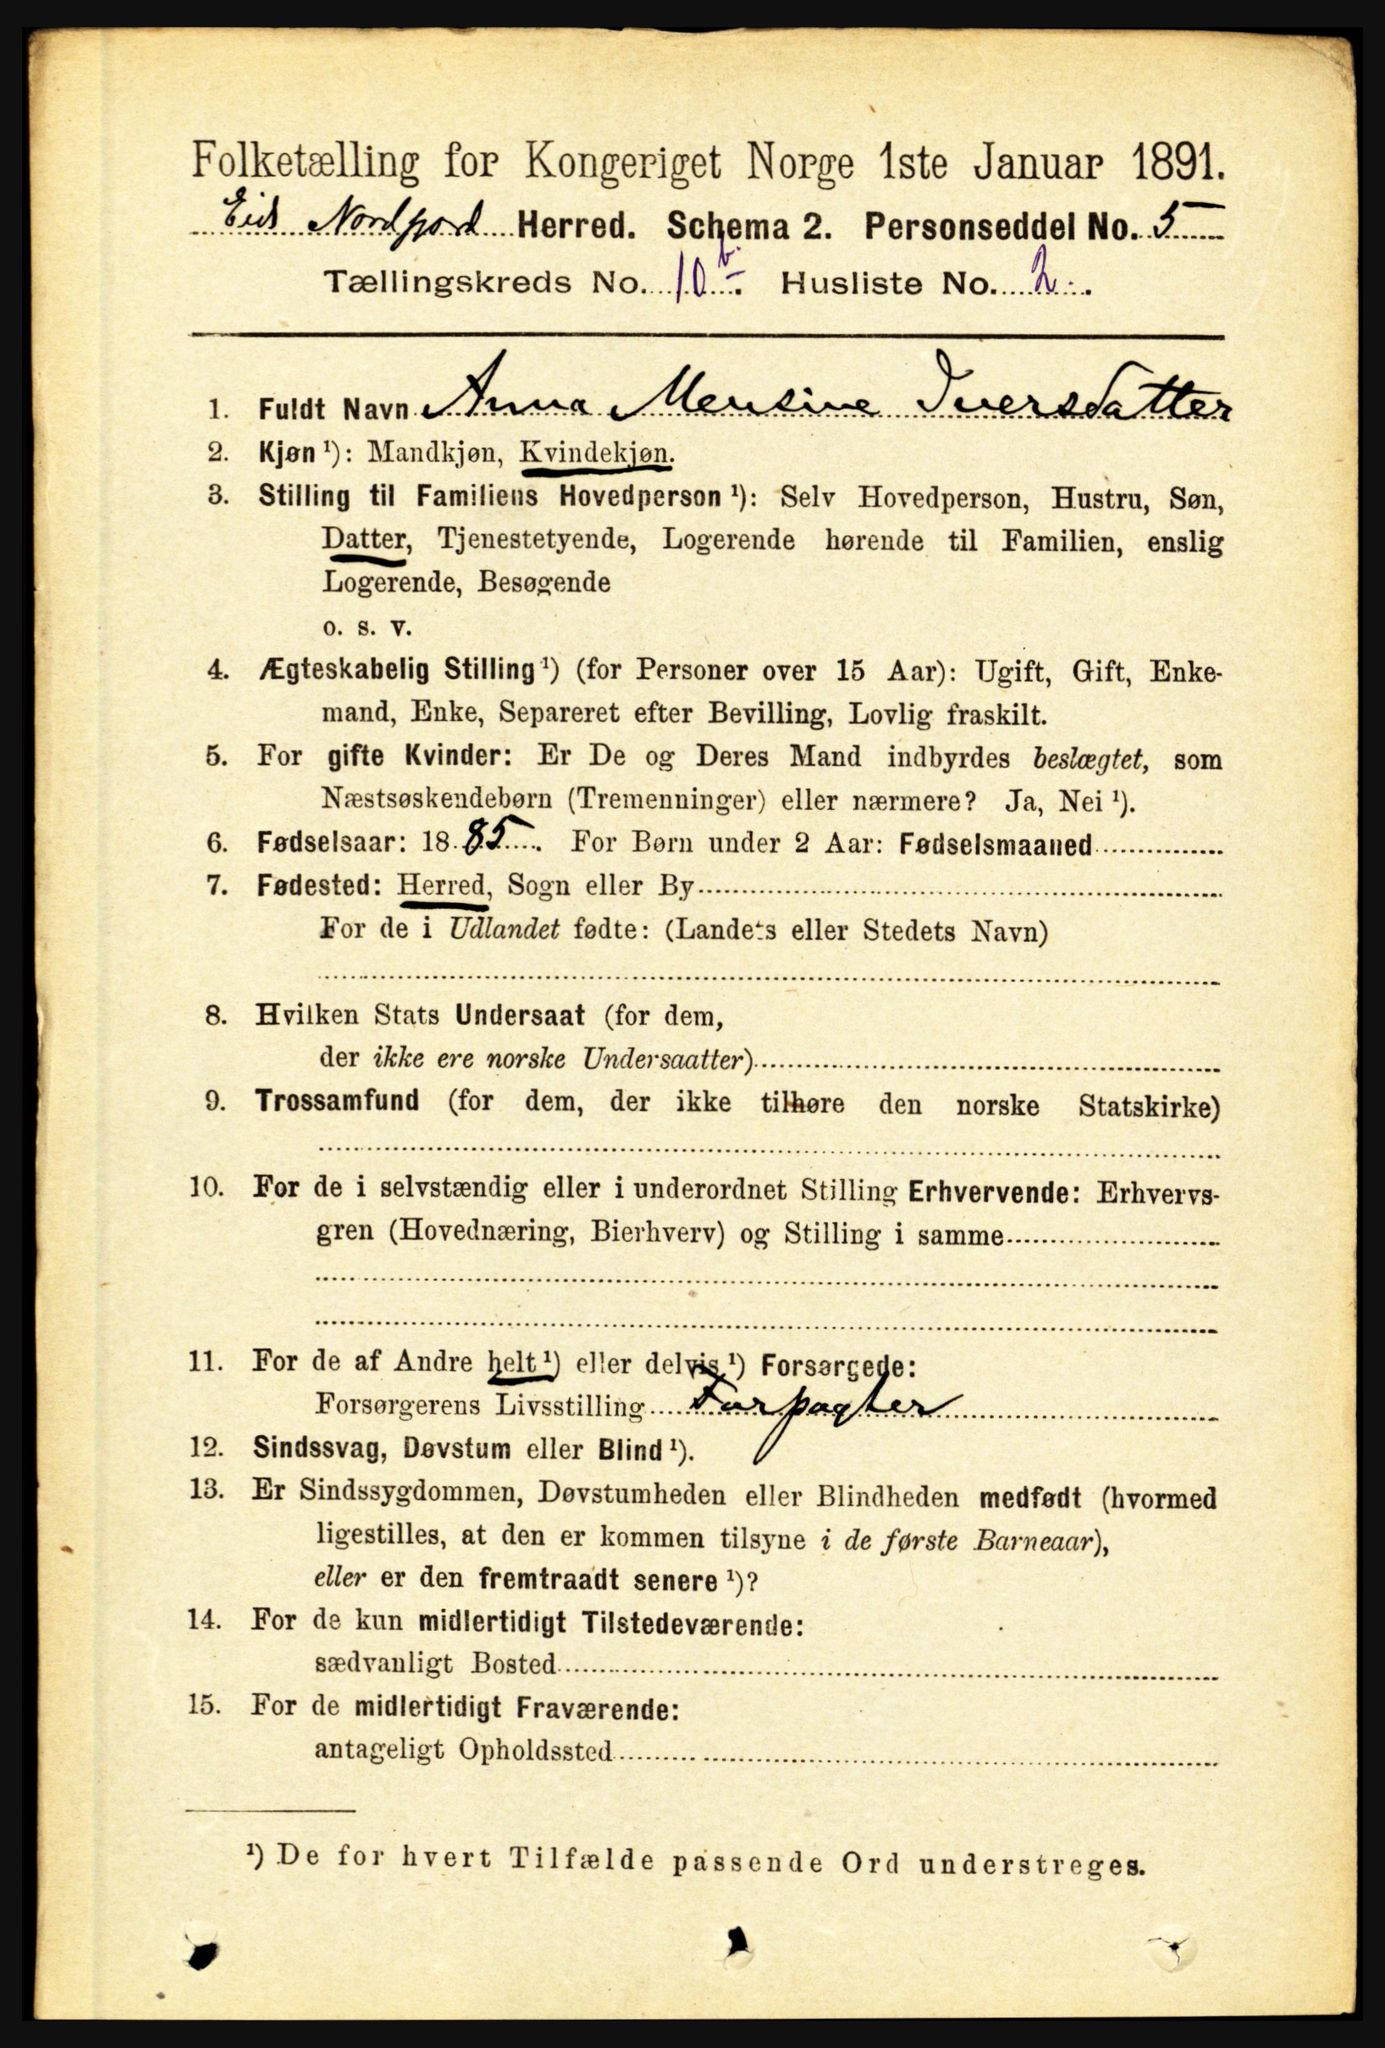 Folketælling for Kongeriget Norge 1ste Januar 1891.
Eid Nordfjord Herred. Schema 2. Personseddel No. 5
Tællingskreds No. 10 b. Husliste No. 2.
1. Fuldt Navn Anna Mensine Iversdatter
2. Kjøn ¹): Mandkjøn, Kvindekjøn.
3. Stilling til Familiens Hovedperson ¹): Selv Hovedperson, Hustru, Søn,
Datter, Tjenestetyende, Logerende hørende til Familien, enslig
Logerende, Besøgende
o. s. v.
4. Ægteskabelig Stilling ¹) (for Personer over 15 Aar): Ugift, Gift, Enke-
mand, Enke, Separeret efter Bevilling, Lovlig fraskilt.
5. For gifte Kvinder: Er De og Deres Mand indbyrdes beslægtet, som
Næstsøskendebørn (Tremenninger) eller nærmere? Ja, Nei ¹).
6. Fødselsaar: 1885. For Børn under 2 Aar: Fødselsmaaned
7. Fødested: Herred, Sogn eller By
For de i Udlandet fødte: (Landets eller Stedets Navn)
8. Hvilken Stats Undersaat (for dem,
der ikke ere norske Undersaatter)
9. Trossamfund (for dem, der ikke tilhøre den norske Statskirke)
10. For de i selvstændig eller i underordnet Stilling Erhvervende: Erhvervs-
gren (Hovednæring, Bierhverv) og Stilling i samme
11. For de af Andre helt ¹) eller delvis ¹) Forsørgede:
Forsørgerens Livsstilling Forpagter
12. Sindssvag, Døvstum eller Blind ¹).
13. Er Sindssygdommen, Døvstumheden eller Blindheden medfødt (hvormed
ligestilles, at den er kommen tilsyne i de første Barneaar),
eller er den fremtraadt senere ¹)?
14. For de kun midlertidigt Tilstedeværende:
sædvanligt Bosted
15. For de midlertidigt Fraværende:
antageligt Opholdssted
¹) De for hvert Tilfælde passende Ord understreges.